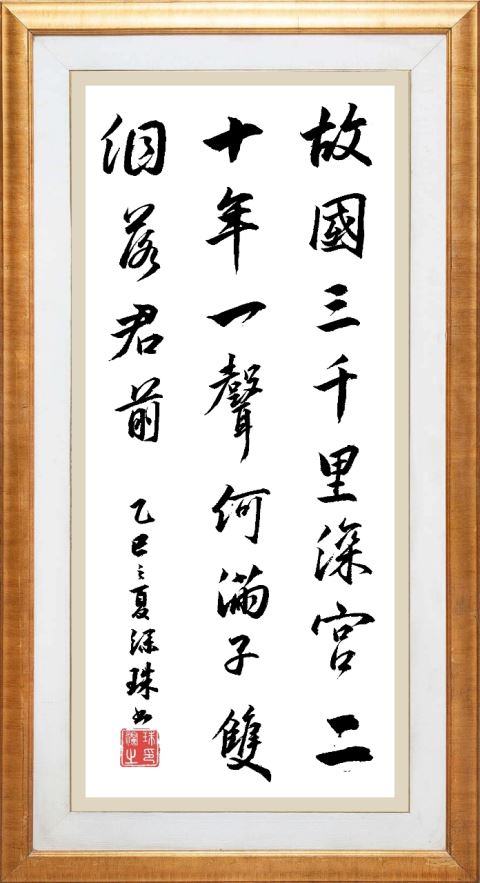 故國三千里深宮二
十年一聲何滿子雙
泪落君前
乙巳之夏 珠书